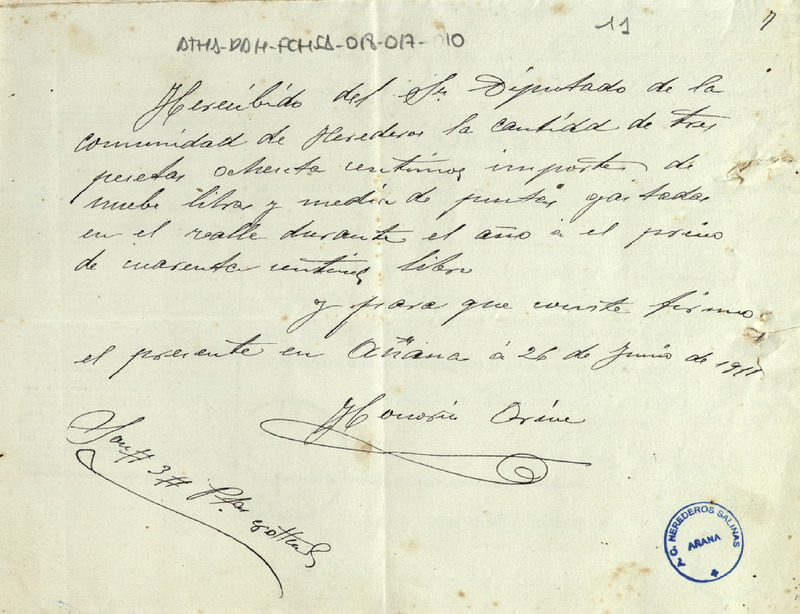 ATHA-DAH-FCHSA-018-017-010
11
Herecibido del Sr. Diputado de la
comunidad de Herederos la cantidad de tres
pesetas ochenta centimos importe de
nuebe libras y media de puntas gastadas
en el realle durante el año a el precio
de cuarenta centimos libra
y para que conste firmo
el presente en Añana á 26 de Junio de 1911
Honorio
Son # 3 # Ptas
A. C. HEREDEROS SALINAS
AÑANA